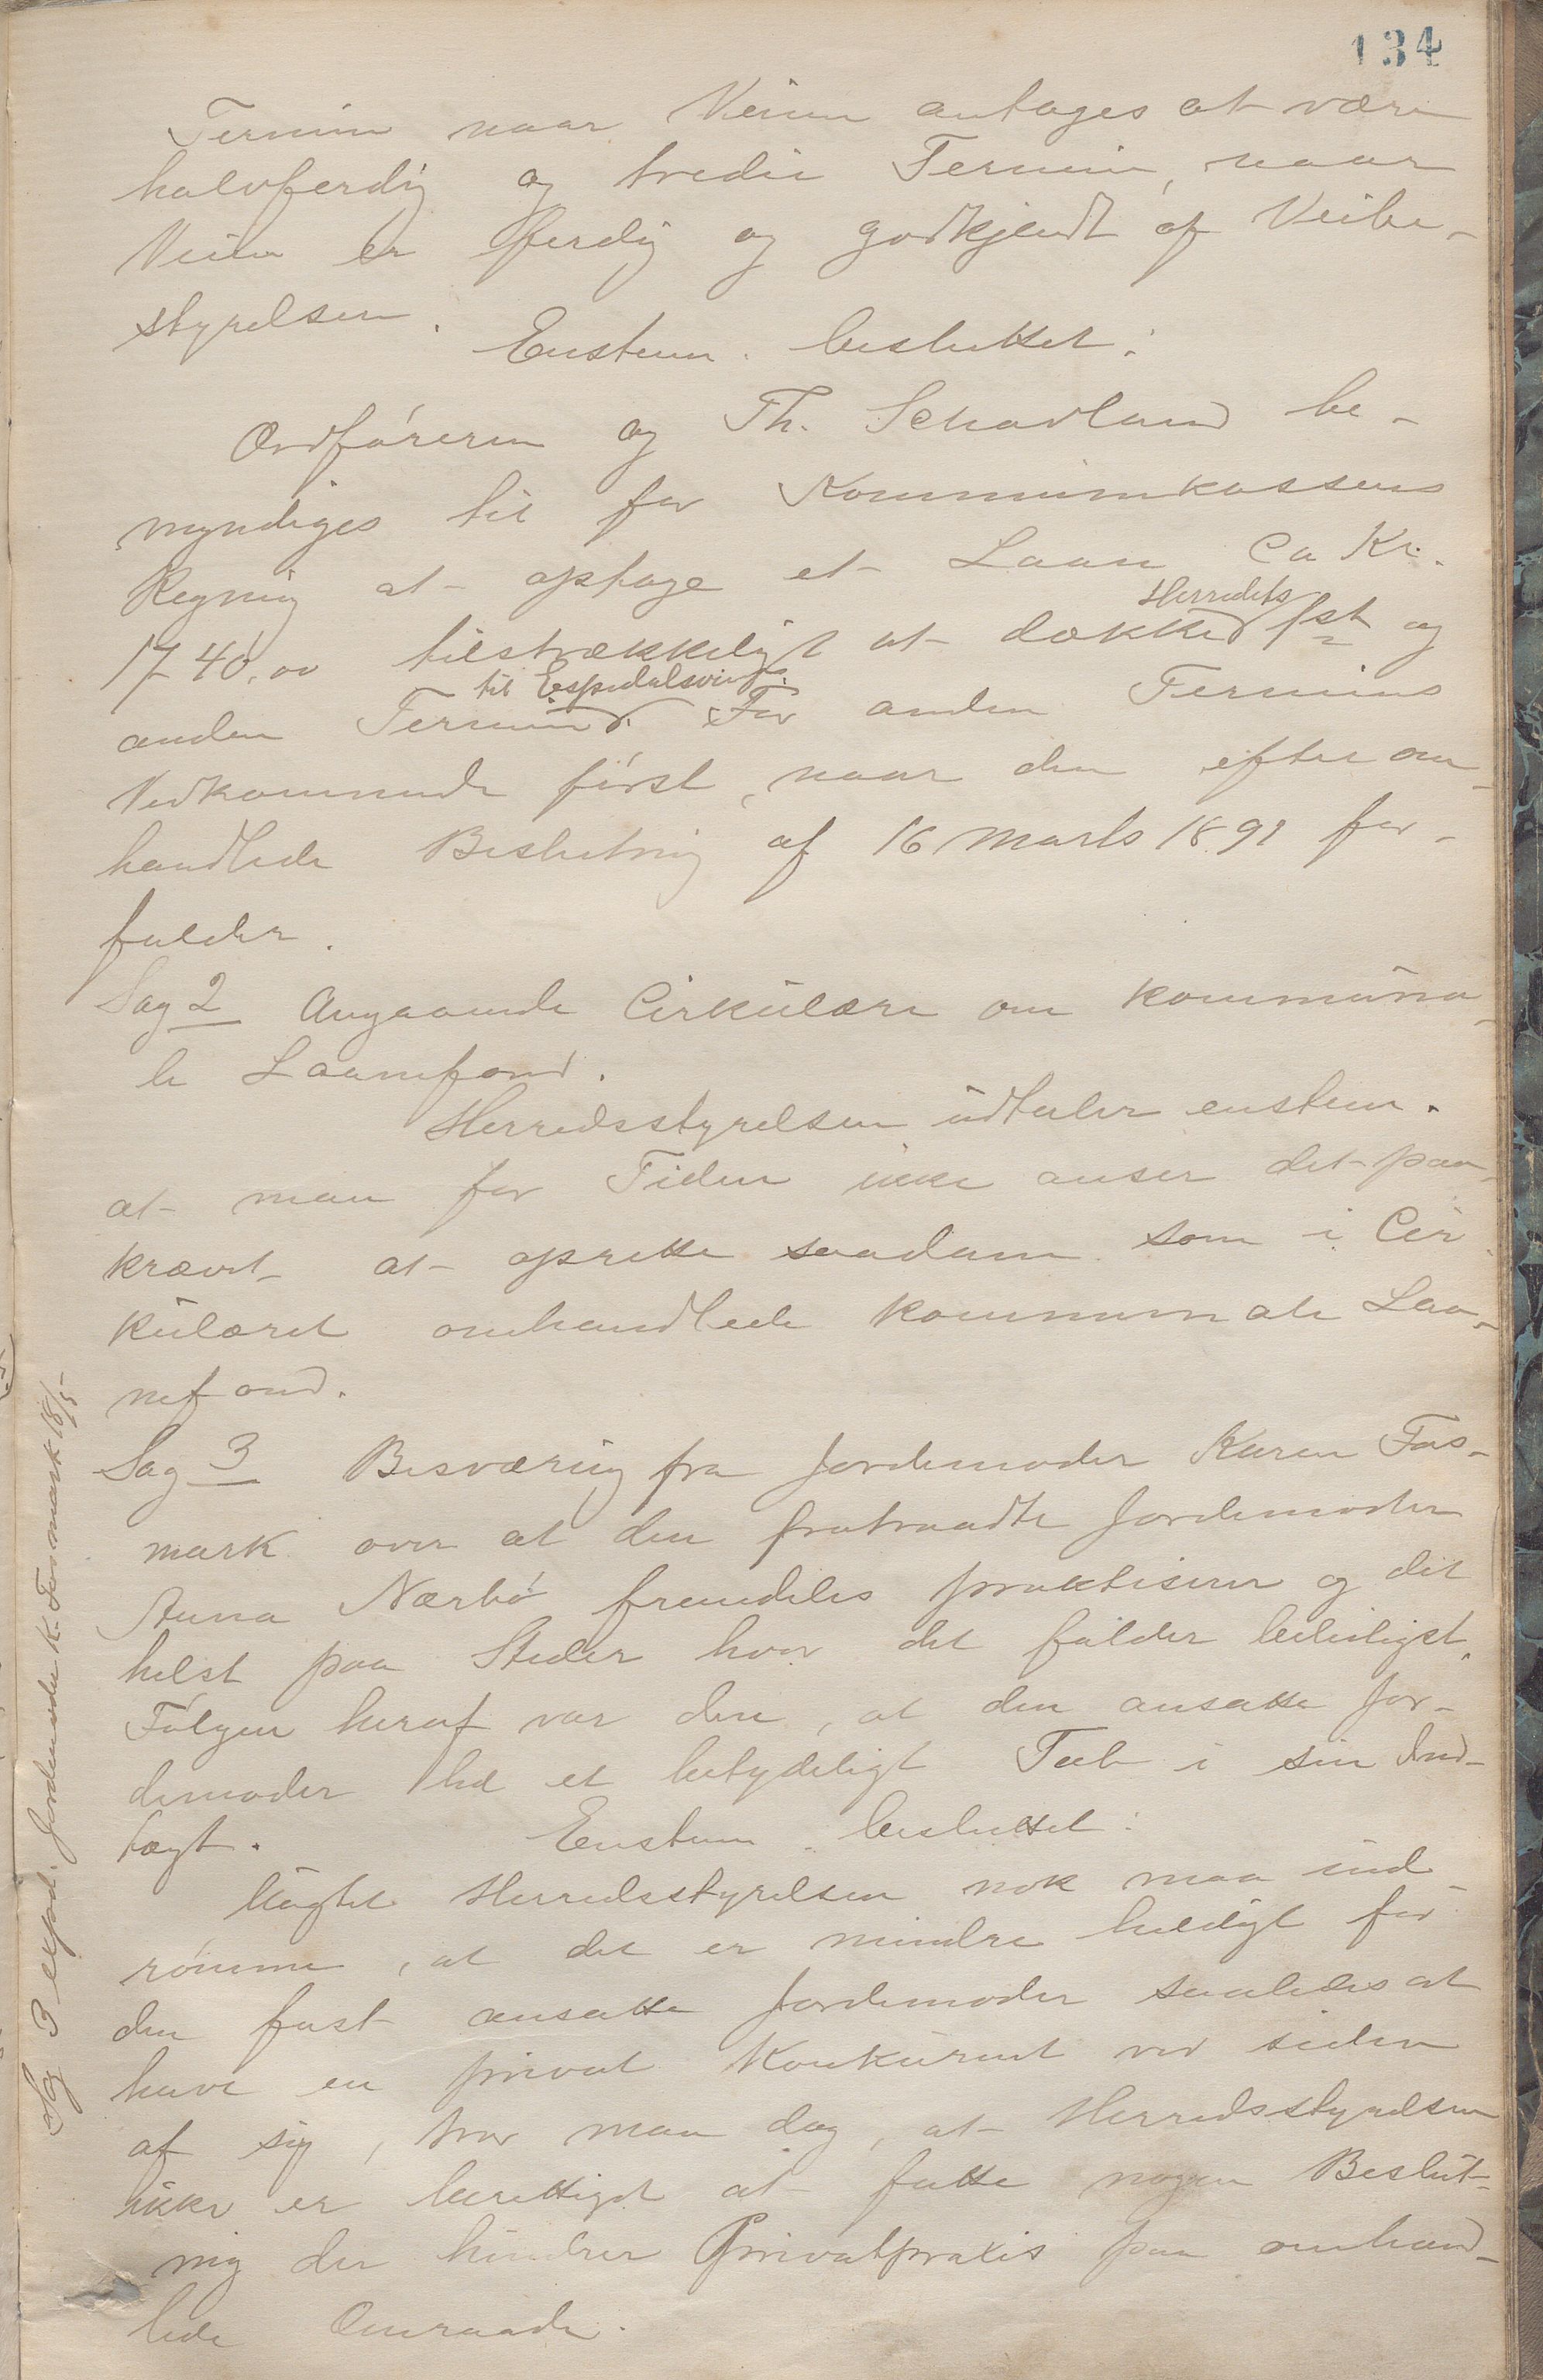 134
Termin naar Veien antages at være
halvferdig og tredie Termin, naar
Veien er ferdig og godkjendt af Veibe-
styrelsen.
Enstem. besluttet:
Ordføreren og Th. Schavland be-
myndiges til for Kommunekassens
Regning at optage et Laan Ca Kr.
1740,00 tilstrækkeligt at dække Herredets 1ste og
anden Termin til Espedalsveien. For anden Termins
Vedkommende først, naar den efter om-
handlede Beslutning af 16 Marts 1891 for-
falder.
Sag 2 Angaaende Cirkulære om kommuna-
le Laanefond.
Herredsstyrelsen udtaler enstem.
at man for Tiden ikke anser det paa-
krævet at oprette saadane som i Cir-
kulæret omhandlede kommunale Laa-
nefond.
Sag 3 Besværing fra Jordemoder Karen Fos-
mark over at den fratraadte Jordemoder
Anna Nærbø fremdeles praktiserer og det
helst paa Steder hvor det falder beleiligst.
Følgen heraf var den, at den ansatte Jor-
demoder led et betydeligt Tab i sin Ind-
tægt.
Enstem. besluttet:
Uagtet Herredsstyrelsen nok maa ind-
rømme, at det er mindre heldigt for
den fast ansatte Jordemoder saaledes at
have en privat Konkurent ved siden
af sig, tror man dog, at Herredsstyrelsen
ikke er berettiget at fatte nogen Beslut-
ning der hindrer Privatpraxis paa omhand-
lede Omraade.
Sag 3 exped. Jordemoder K. Fosmark 18/5